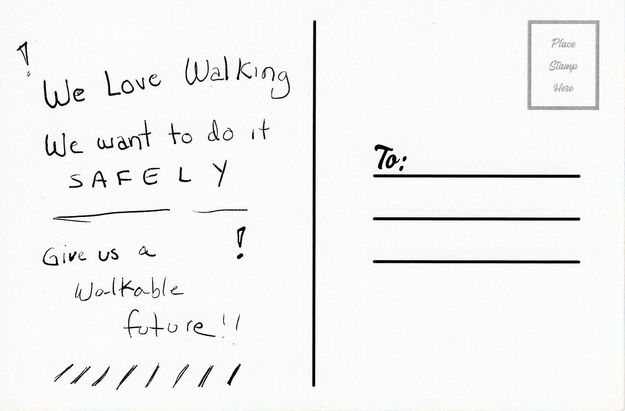 ! We Love Walking
We want to do it
SAFELY
Give us a !
Walkable
future!!
Place
Stamp
Here
To: